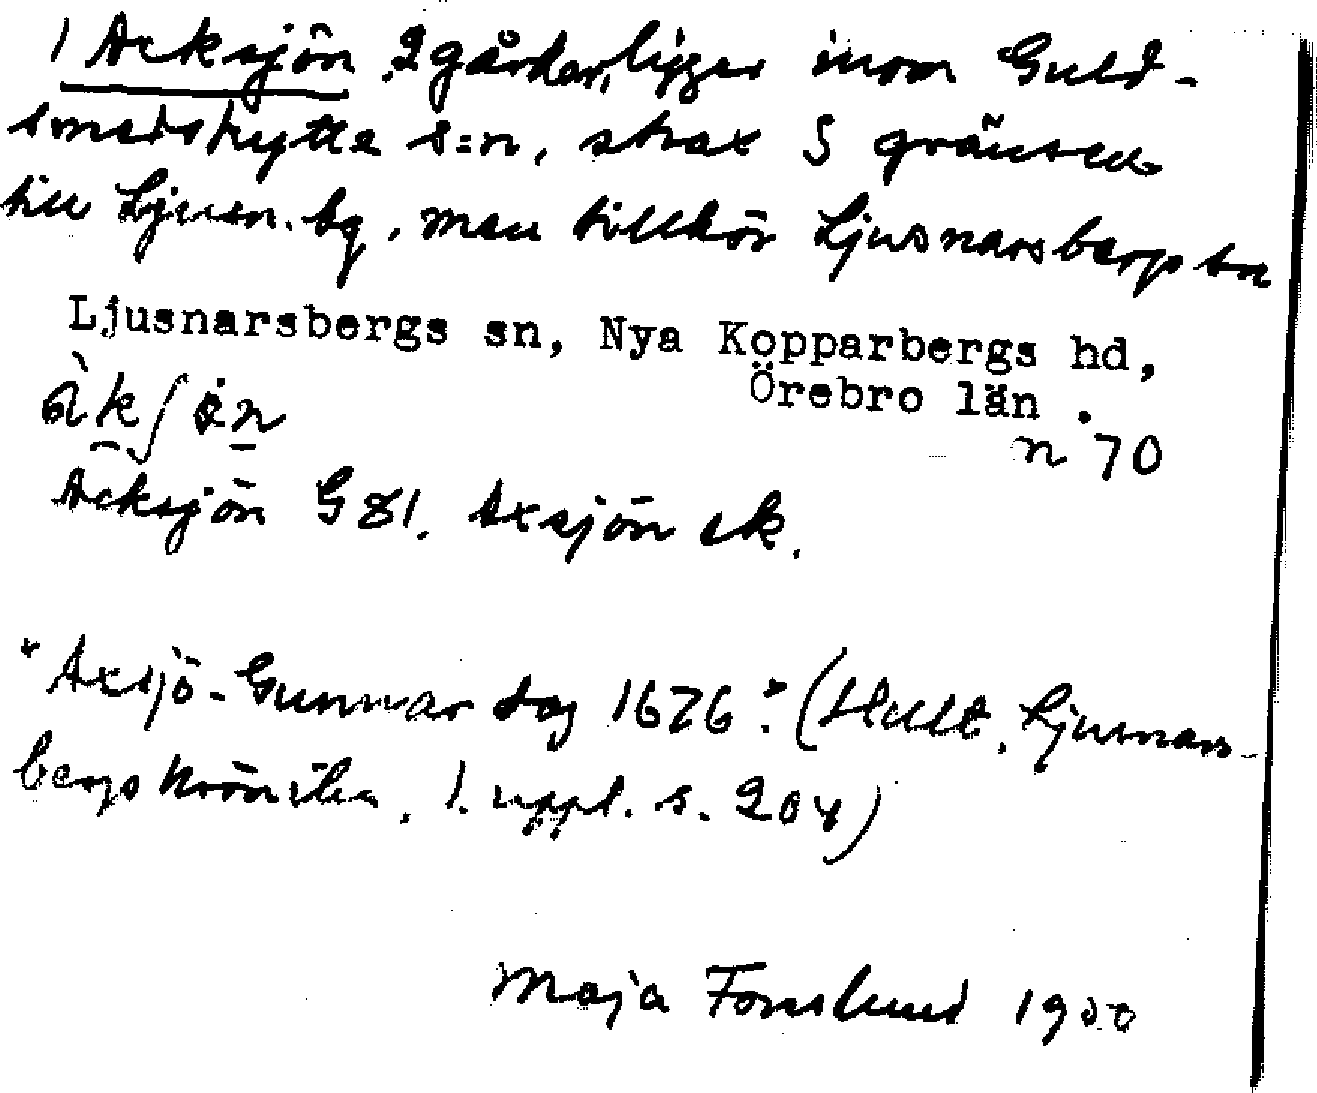 1 Acksjön, 2 gårdar, ligger inom Guld-
smedshytte s:n, strax S gränsen
till Ljusn.bg, men tillhör Ljusnarsbergs sn
Ljusnarsbergs sn, Nya Kopparbergs hd,
Örebro län.
n 70
Acksjön G 81. Axsjön ek.
"Axsjö-Gunnar dog 1676." (Hult, Ljusnars-
bergskrönika, 1. uppl. s. 204)
Maja Forslund 1950